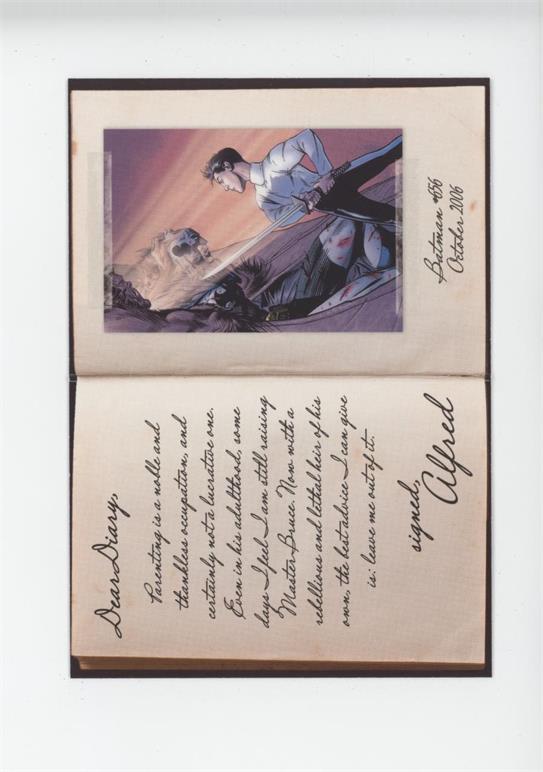 Dear Diary,
Parenting is a noble and
thankless occupation, and
certainly not a lucrative one.
Even in his adulthood, some
days I feel I am still raising
Master Bruce. Now with a
rebellious and lethal heir of his
own, the best advice I can give
is: leave me out of it.
signed,
Alfred
Batman #656
October 2006